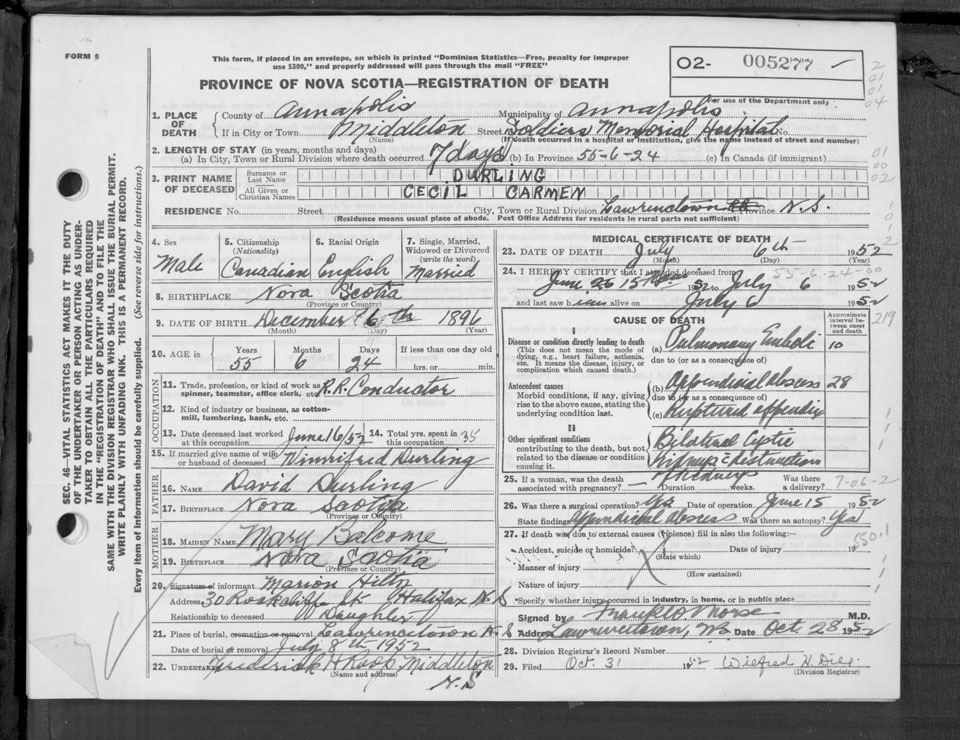 FORM 5
This form, if placed in an envelope, on which is printed "Dominion Statistics—Free, penalty for improper
use $300," and properly addressed will pass through the mail "FREE"
PROVINCE OF NOVA SCOTIA—REGISTRATION OF DEATH
O2- 005277
For use of the Department only
1. PLACE OF DEATH
County of Annapolis Municipality of Annapolis
If in City or Town Middleton Street Soldiers Memorial Hospital No.
(Name) (If death occurred in a hospital or institution, give the name instead of street and number)
2. LENGTH OF STAY (in years, months and days)
(a) In City, Town or Rural Division where death occurred 7 days (b) In Province 55-6-24 (c) In Canada (if immigrant)
3. PRINT NAME OF DECEASED
Surname or Last Name DURLING
All Given or Christian Names CECIL CARMEN
RESIDENCE No. Street City, Town or Rural Division Lawrencetown Province N.S.
(Residence means usual place of abode. Post Office Address for residents in rural parts not sufficient)
4. Sex Male
5. Citizenship (Nationality) Canadian
6. Racial Origin English
7. Single, Married, Widowed or Divorced (write the word) Married
8. BIRTHPLACE Nova Scotia
(Province or Country)
9. DATE OF BIRTH December 16th 1896
(Month) (Day) (Year)
10. AGE in Years 55 Months 6 Days 24 If less than one day old hrs. or min.
OCCUPATION
11. Trade, profession, or kind of work as spinner, teamster, office clerk, etc. R.R. Conductor
12. Kind of industry or business, as cotton-mill, lumbering, bank, etc.
13. Date deceased last worked at this occupation June 16/52 14. Total yrs. spent in this occupation 35
15. If married give name of wife or husband of deceased Winnifred Durling
FATHER
16. NAME David Durling
17. BIRTHPLACE Nova Scotia
(Province or Country)
MOTHER
18. MAIDEN NAME Mary Balcome
19. BIRTHPLACE Nova Scotia
(Province or Country)
20. Signature of informant Marion Hiltz
Address 30 Rockcliffe St. Halifax N.S
Relationship to deceased Daughter
21. Place of burial, cremation or removal Lawrencetown N.S
Date of burial or removal July 8th 1952
22. Undertaker Frederick H Roop, Middleton
(Name and address) N.S
MEDICAL CERTIFICATE OF DEATH
23. DATE OF DEATH July 6th 1952
(Month) (Day) (Year)
24. I HEREBY CERTIFY that I attended deceased from 55-6-24-00
June 26 15 1952 to July 6 1952
and last saw him alive on July 6 1952
CAUSE OF DEATH
Approximate interval between onset and death
219
I
Disease or condition directly leading to death
(This does not mean the mode of dying, e.g., heart failure, asthenia, etc. It means the disease, injury, or complication which caused death.)
(a) Pulmonary Emboli 10
due to (or as a consequence of)
Antecedent causes
Morbid conditions, if any, giving rise to the above cause, stating the underlying condition last.
(b) Appendicial abscess 28
due to (or as a consequence of)
(c) Ruptured appendix
II
Other significant conditions
contributing to the death, but not related to the disease or condition causing it.
Bilateral Cystic
Kidneys
25. If a woman, was the death associated with pregnancy? Duration weeks. Was there a delivery?
26. Was there a surgical operation? Yes Date of operation June 15 1952
State finding Appendicial Abscess Was there an autopsy? Yes
27. If death was due to external causes (violence) fill in also the following:—
Accident, suicide or homicide? Date of injury 19
(State which)
Manner of injury
(How sustained)
Nature of injury
Specify whether injury occurred in industry, in home, or in public place
Signed by Frank L Morse M.D.
Address Lawrencetown, NS Date Oct. 28 1952
28. Division Registrar's Record Number
29. Filed Oct. 31 1952
(Division Registrar)
SEC. 46—VITAL STATISTICS ACT MAKES IT THE DUTY
OF THE UNDERTAKER OR PERSON ACTING AS UNDER-
TAKER TO OBTAIN ALL THE PARTICULARS REQUIRED
IN THE "REGISTRATION OF DEATH" AND TO FILE THE
SAME WITH THE DIVISION REGISTRAR WHO SHALL ISSUE THE BURIAL PERMIT.
WRITE PLAINLY WITH UNFADING INK. THIS IS A PERMANENT RECORD.
Every item of information should be carefully supplied. (See reverse side for instructions.)